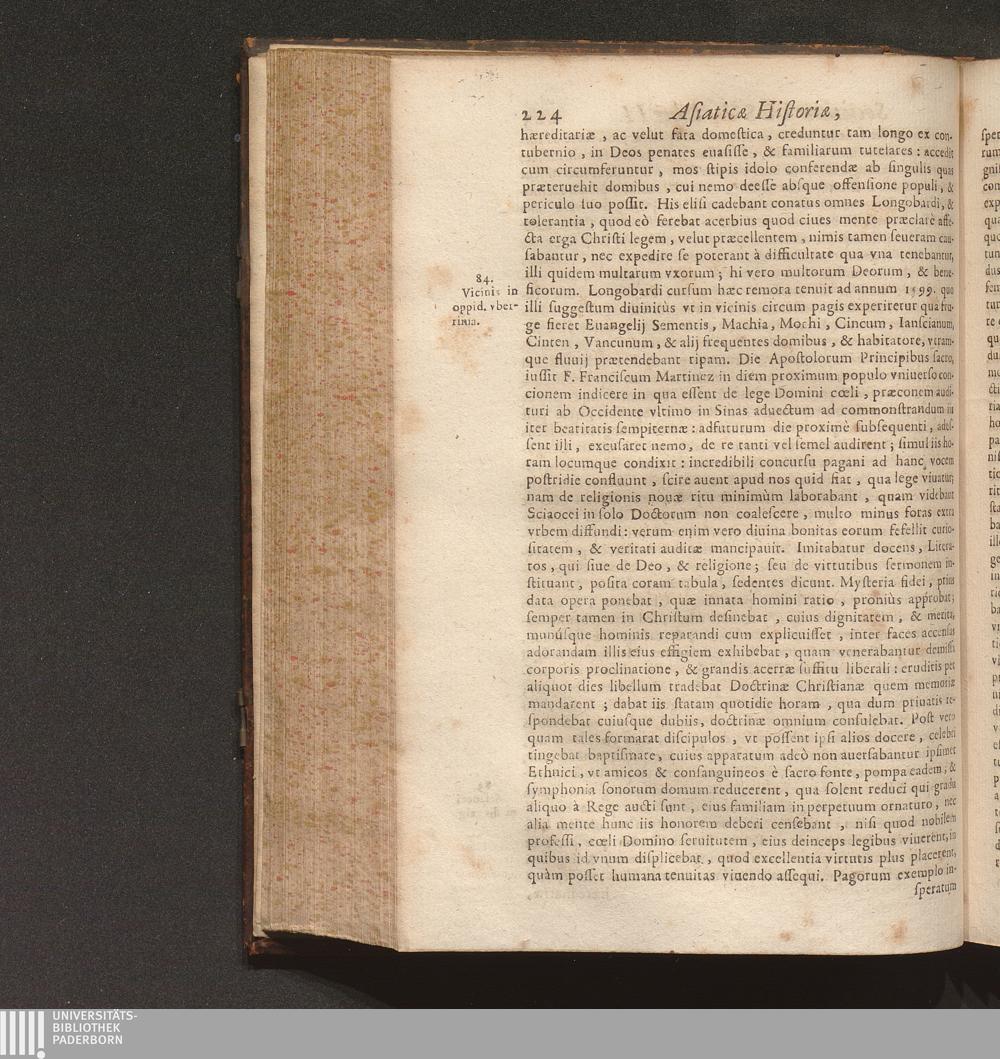 224 Asiaticæ Historiæ,
hæreditariæ , ac velut fata domestica , creduntur tam longo ex con-
tubernio , in Deos penates euasisse , & familiarum tutelares : accedit
cum circumferuntur , mos stipis idolo conferendæ ab singulis quas
præteruehit domibus , cui nemo deesse absque offensione populi , &
periculo suo possit. His elisi cadebant conatus omnes Longobardi, &
tolerantia , quod eò ferebat acerbius quod ciues mente præclarè affe-
cta erga Christi legem , velut præcellentem , nimis tamen seueram cau-
sabantur , nec expedire se poterant à difficultate qua vna tenebantur,
illi quidem multarum vxorum ; hi vero multorum Deorum , & bene-
84.
Vicinis in
oppid. vber-
rima.
ficorum. Longobardi cursum hæc remora tenuit ad annum 1599. quo
illi suggestum diuinitùs vt in vicinis circum pagis experiretur qua fru-
ge fieret Euangelij Sementis , Machia , Mochi , Cincum , Ianscianum,
Cinten , Vancunum , & alij frequentes domibus , & habitatore, vtram-
que fluuij prætendebant ripam. Die Apostolorum Principibus sacro,
iussit F. Franciscum Martinez in diem proximum populo vniuerso con-
cionem indicere in qua essent de lege Domini cœli , præconem audi-
turi ab Occidente vltimo in Sinas aduectum ad commonstrandum iis
iter beatitatis sempiternæ : adfuturum die proximè subsequenti , ades-
sent illi , excusaret nemo, de re tanti vel semel audirent ; simul iis ho-
ram locumque condixit : incredibili concursu pagani ad hanc vocem
postridie confluunt , scire auent apud nos quid fiat , qua lege viuatur;
nam de religionis nouæ ritu minimùm laborabant , quam videbant
Sciaocei in solo Doctorum non coalescere , multo minus foras extra
vrbem diffundi : verum enim vero diuina bonitas eorum fefellit curio-
sitatem , & veritati auditæ mancipauit. Imitabatur docens , Litera-
tos , qui siue de Deo , & religione ; seu de virtutibus sermonem in-
stituant , posita coram tabula , sedentes dicunt. Mysteria fidei , prius
data opera ponebat , quæ innata homini ratio , proniùs approbat;
semper tamen in Christum desinebat , cuius dignitatem , & merita,
munúsque hominis reparandi cum explicuisset , inter faces accensas
adorandam illis eius effigiem exhibebat , quam venerabantur demissi
corporis proclinatione , & grandis acerræ suffitu liberali : eruditis per
aliquot dies libellum tradebat Doctrinæ Christianæ quem memoriæ
mandarent ; dabat iis statam quotidie horam , qua dum priuatis re-
spondebat cuiusque dubiis, doctrinæ omnium consulebat. Post vero
quam tales formarat discipulos , vt possent ipsi alios docere , celebri
tingebat baptismate, cuius apparatum adeò non auersabantur ipsimet
Ethnici , vt amicos & consanguineos è sacro fonte, pompa eadem , &
symphonia sonorum domum reducerent , qua solent reduci qui gradu
aliquo à Rege aucti sunt , eius familiam in perpetuum ornaturo , nec
alia mente hunc iis honorem deberi censebant , nisi quod nobilem
professi , cœli Domino seruitutem , eius deinceps legibus viuerent, in
quibus id vnum displicebat , quod excellentia virtutis plus placerent,
quàm posset humana tenuitas viuendo assequi. Pagorum exemplo in-
speratum
UNIVERSITÄTS-
BIBLIOTHEK
PADERBORN